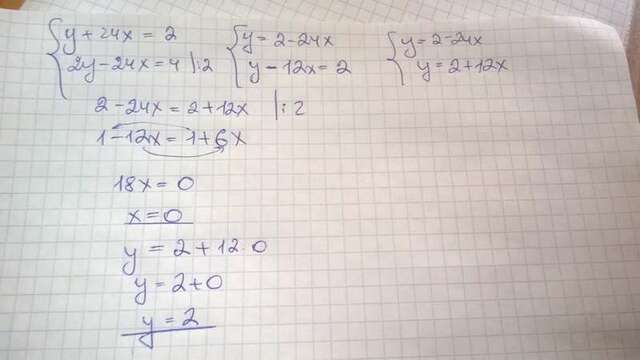 y + 24x = 2
2y - 24x = 4 |:2
y = 2 - 24x
y - 12x = 2
y = 2 - 24x
y = 2 + 12x
2 - 24x = 2 + 12x |:2
1 - 12x = 1 + 6x
18x = 0
x = 0
y = 2 + 12·0
y = 2 + 0
y = 2